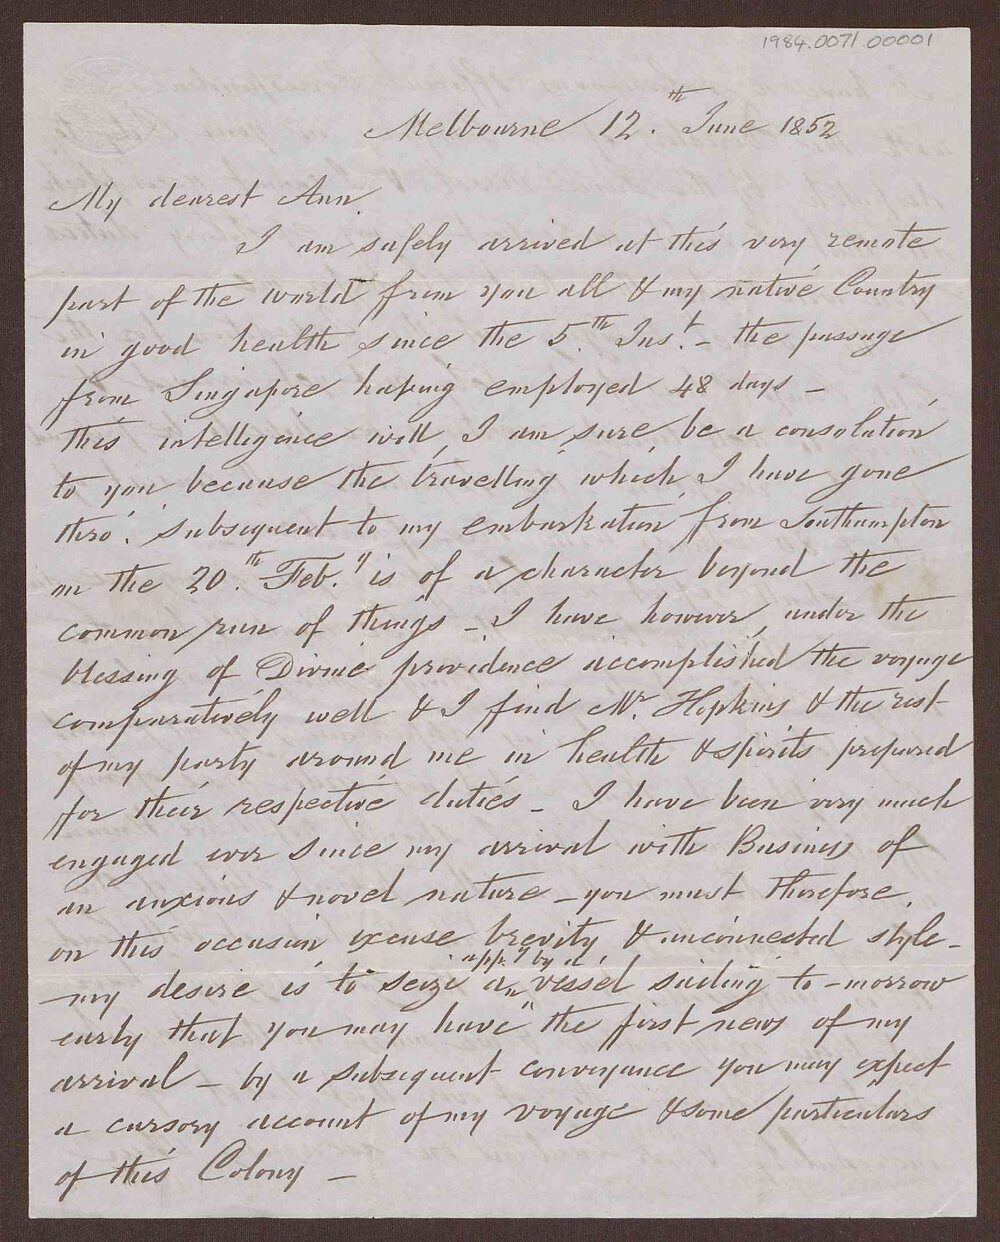 1984.0071.00001
Melbourne 12.th June 1852
My dearest Ann
I am safely arrived at this very remote
part of the world from you all & my native Country
in good health since the 5.th Inst. - the passage
from Singapore having employed 48 days -
this intelligence will, I am sure be a consolation
to you because the travelling which I have gone
thro'. subsequent to my embarkation from Southampton
on the 20.th Feb.y is of a character beyond the
common run of things - I have however, under the
blessing of Divine providence accomplished the voyage
comparatively well & I find Mr. Hopkins & the rest
of my party around me in health & spirits prepared
for their respective duties - I have been very much
engaged ever since my arrival with Business of
an anxious & novel nature - you must therefore,
on this occasion excuse brevity & unconnected style -
opp.y by a
my desire is to seize an vessel sailing to-morrow
early that you may have the first news of my
arrival - by a subsequent conveyance you may expect
a cursory account of my voyage & some particulars
of this Colony -